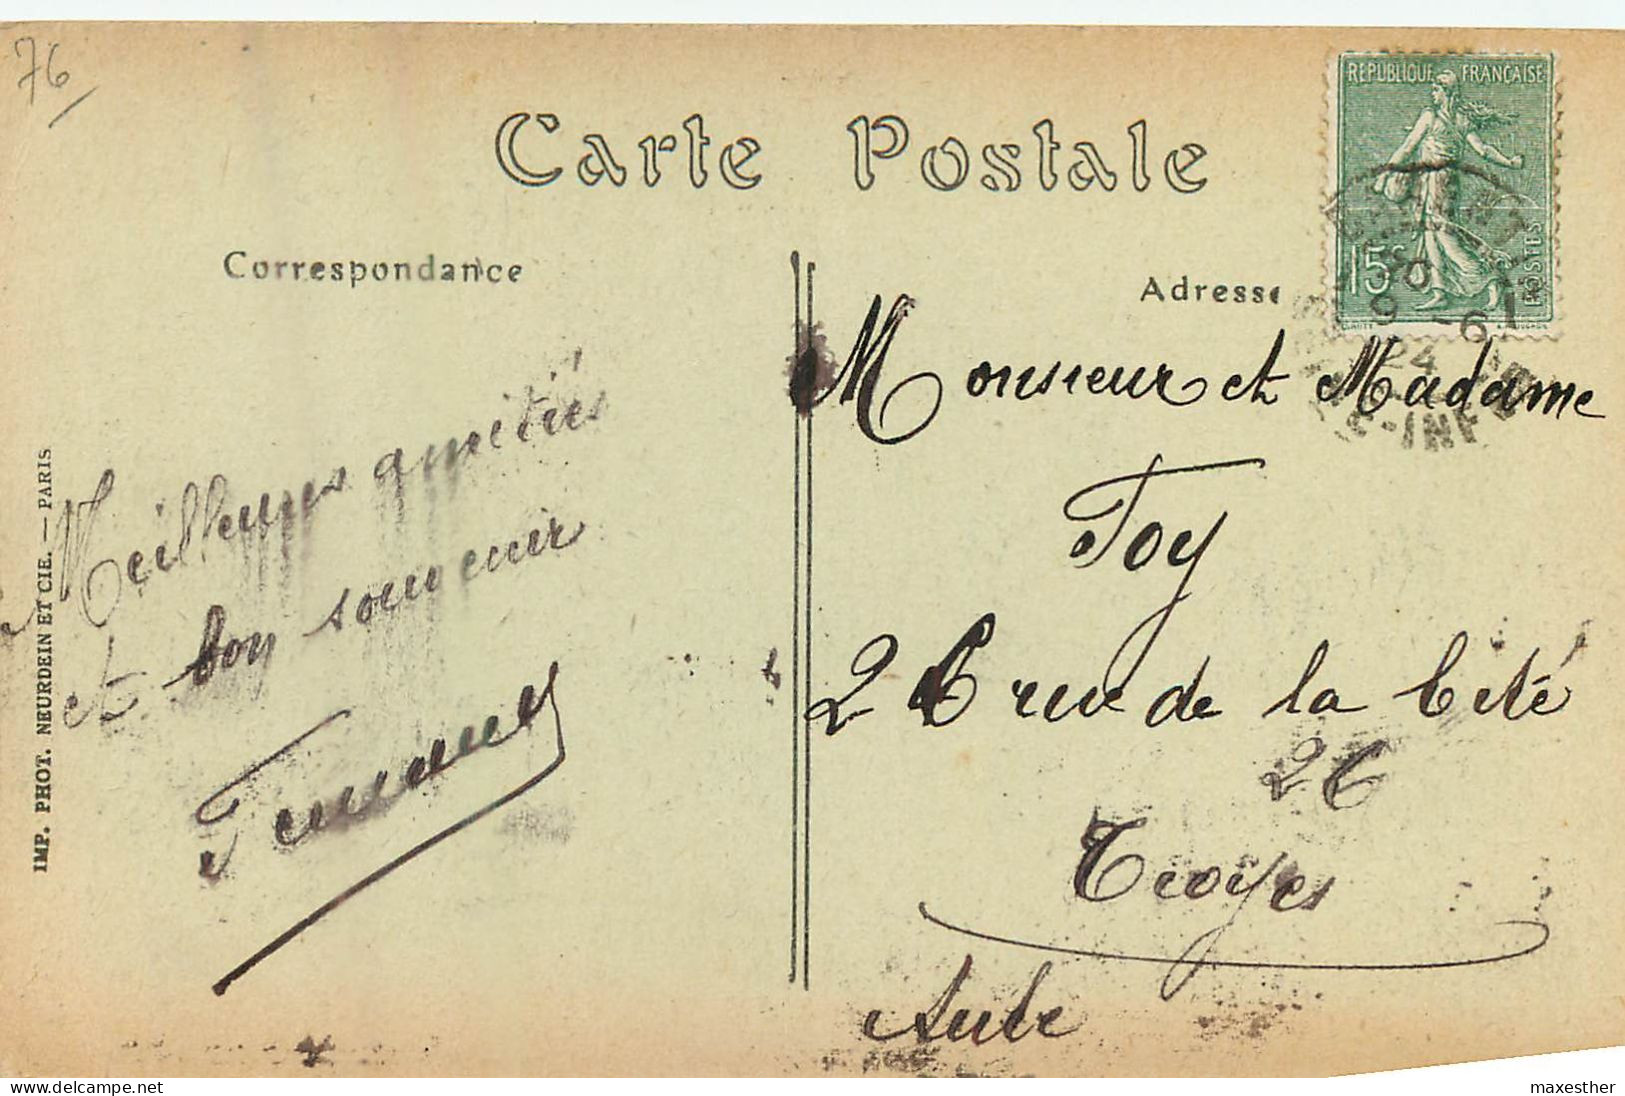 76
Carte Postale
REPUBLIQUE FRANÇAISE
15c
POSTES
9 -6
24
E-INF
Correspondance
Adresse
Meilleures amitiés
et bon souvenir
Monsieur et Madame
Toy
26 rue de la Cité
26
Troyes
Aube
IMP. PHOT. NEURDEIN ET CIE. — PARIS
maxesther